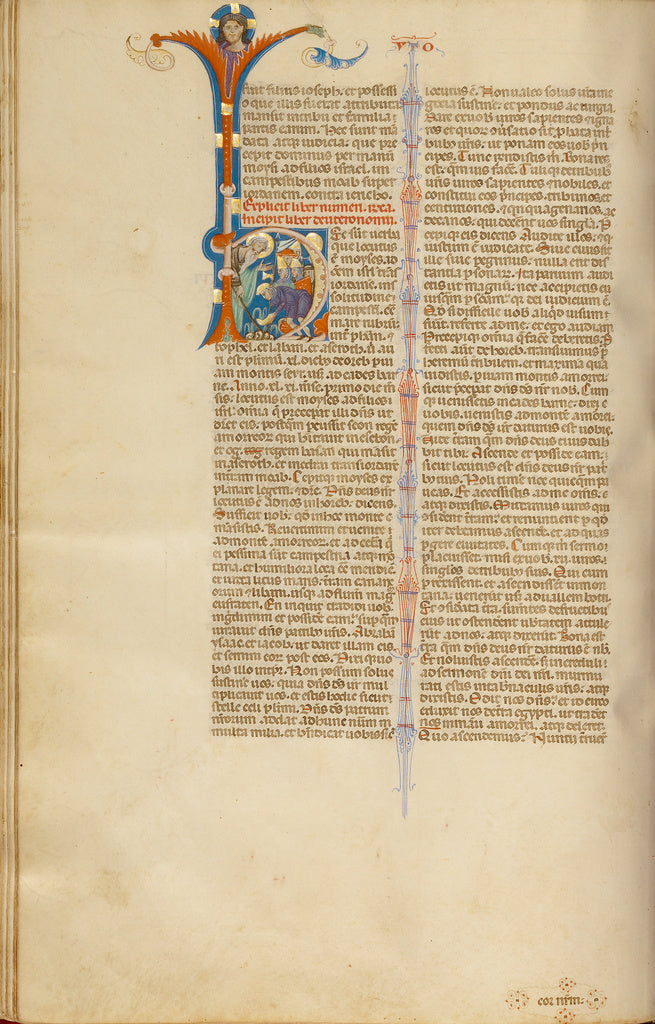 V T O
fuit filius ioseph. et possessi
o que illis fuerat attributa
mansit in tribu et familia
patris earum. Hec sunt mā
data atqͣ iudicia. que pre
cepit dominus per manū
moysi ad filios israel. in
campestribus moab super
iordanem. contra iericho.
Explicit liber numeri.
Incipit liber deuteronomii.
Hec sūt uerba
que locutus
ē moyses. ad
oēm isrl trās
iordanē. in
solitudine
campest. cō
tra mare rubrū.
int phan. et
tophel. et laban. et aseroth. ū au
ri est plimū. xl. dieb de oreb per
am montis seyr. usqͣ ad cades bar
ne. Anno. xl. xi. mse. primo die m
sis. locutus est moyses ad filios i
srl. omia q̄ preceperat illi dn̄s ut
diceret eis. postqm̄ percussit seon regē
amorreor qui hitauit in esebon.
et og. regem basan qui māsit
in aseroth. et in edrai trans iordanē
in terram moab. Cepitqͣ moyses ex
planare legem. et dicere. Dn̄s deus nr̄
locutus ē ad nos in horeb. dicens.
Sufficit uob. qd in hoc monte
mansistis. Reuertimini et uenite
ad montē amorreor. et ad cetera q̄
ei proxima sūt campestria atqͣ mō
tana. et humiliora loca cō meridiē.
et iuxta litus maris. trām canane
orum et libani. usqͣ ad flum mag
eufraten. En inquit tradidi uob.
ingredimini et possidete eam. sup qm̄
iurauit dn̄s patribus uris. Abrahā
ysaac. et iacob. ut daret illam eis.
et semini eor post eos. Dixiqͣ uo
bis illo tempr. Non possum solus
sustinere uos. quia dn̄s ds ur mul
tiplicauit uos. et estis hodie sicut
stelle celi plimi. Dn̄s ds patrum
urorum addat ad hunc num m
multa milia. et bn̄dicat uobis sicut
locutus ē. Non ualeo solus ur̄a ne
gocia sustinere. et pondus ac iurgia.
Date ex uob uiros sapientes et gna
ros et quor ouersatio sit pbata in tri
bubus uris. ut ponam eos uob prin
cipes. Tunc rendistis m. Bona res
est. quam uis face. Tuliqͣ de tribub
uris uiros sapientes et nobiles. et
constitui eos principes. tribunos et
centuriones. et quinquagenarios. ac
decanos. qui docerent uos singla. P
cepiqͣ eis dicens. Audite illos. et qd
iustum ē iudicate. Siue ciuis sit
ille siue peregrinus. nulla erit dis
tantia psonar. Ita paruum audi
etis ut magnū. nec accipietis cu
iusqm̄ psonam. qr dei iudicium ē.
Qd si difficile uob aliqd uisum
fūit. referte ad me. et ego audiam.
Precepiqͣ omia q̄ facere deberetis. P
fecti aūt de horeb. transiuimus p
heremū tribilem. et maximā quā
uidistis. p uiam montis amorrei.
sicut peperat dn̄s ds nr̄ nob. Cumqͣ
uenissetis in cades barne. dixi
uobis. uenistis ad montē amorrei.
quem dn̄s ds ur̄ daturus est uobis.
Vide trām qm̄ dn̄s deus tuus dab
bit tibi. Ascende et posside eam.
sicut locutus est dn̄s deus nr̄ pat
bus tuis. Noli timere nec quicqm̄ pa
ueas. Et accessistis ad me omēs. et
atqͣ dixistis. Mittamus uiros qui
osiderent trām. et renuntient p qd
iter debeamus ascendere. et ad quas
pgere ciuitates. Cumqͣ m sermo
placuisset. misi ex uob. xii. uiros.
singlos de tribubus suis. Qui cum
perrexissent. et ascendissent in mon
tana. uenerūt usqͣ ad uallem botri.
Et osidata trā. sumptis de fructibus
eius ut ostenderent ubertatem. attule
rūt ad nos. atqͣ dixerūt. Bona est
trā qm̄ dn̄s deus nr̄ daturus ē nob.
Et noluistis ascendere. sz increduli
ad sermonē dn̄i dei nr̄i. murmu
rati estis in tabernaculis uris. atqͣ
dixistis. Odit nos dn̄s. et idcirco
eduxit nos de terra egypti. ut traderet
nos in manū amorrei. atqͣ deleret.
Quo ascendemus? Nuntii truer
cor nr̄m.